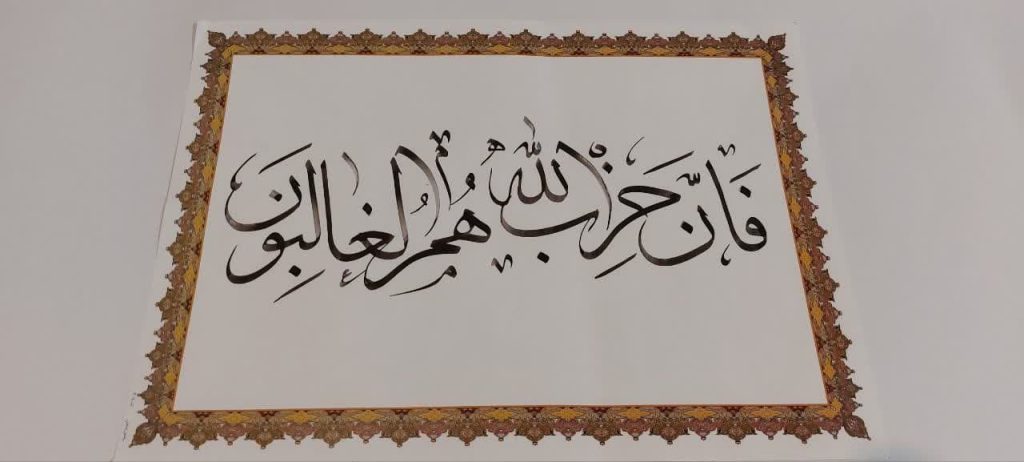 فَاِنَّ حِزْبَ اللهِ هُمُ الْغالِبُونَ